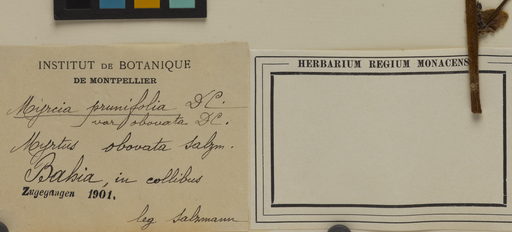 INSTITUT DE BOTANIQUE
DE MONTPELLIER
Myrcia prunifolia DC.
var obovata DC.
Myrtus obovata Salzm.
Bahia, in collibus
Zugegangen 1901.
leg Salzmann
HERBARIUM REGIUM MONACENSE